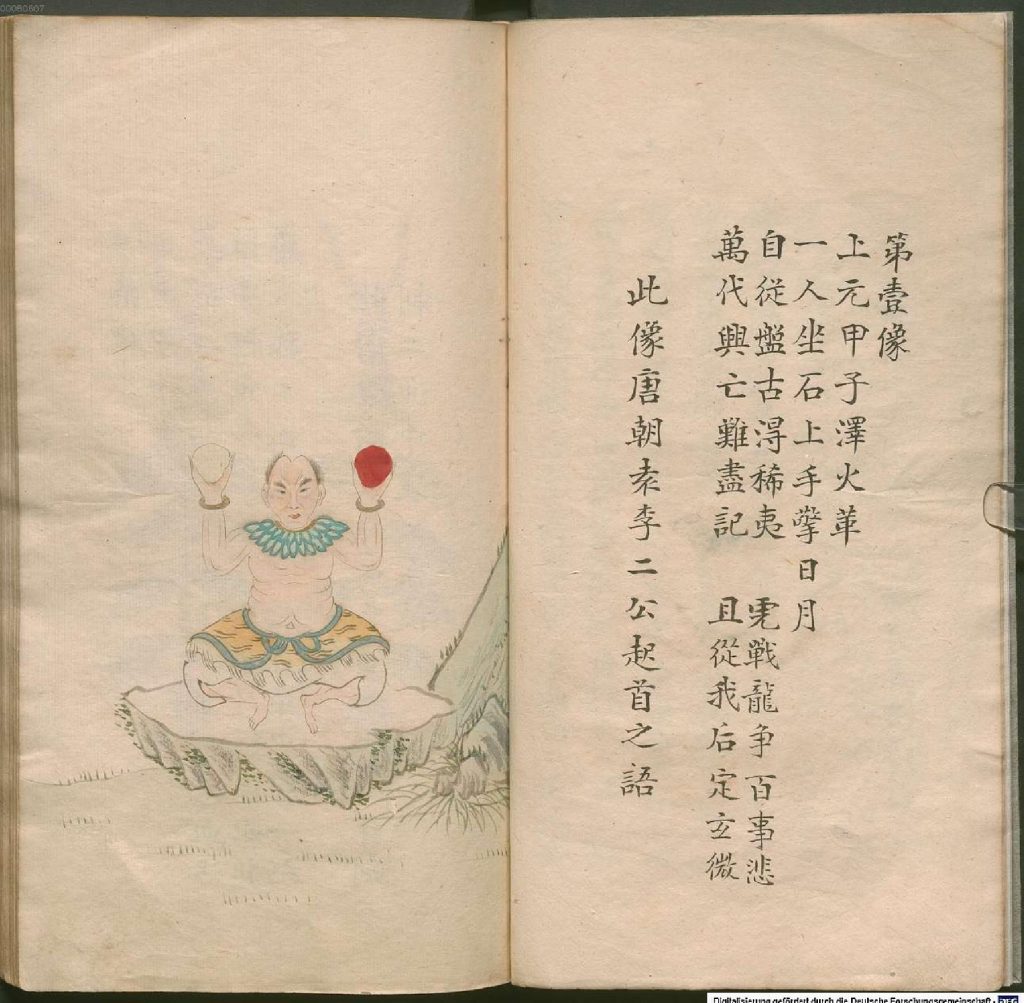 00060607
第壹像
上元甲子澤火革
一人坐石上手擎日月
自從盤古淂稀夷 虎戰龍争百事悲
萬代興亡難盡記 且從我后定玄微
此像唐朝袁李二公起首之語
Digitalisierung gefördert durch die Deutsche Forschungsgemeinschaft - DFG